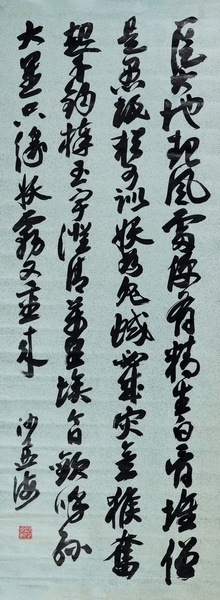 一從大地起風雷便有精生白骨堆僧
是愚氓猶可訓妖為鬼蜮必成災金猴奮
起千鈞棒玉宇澄清萬里埃今日歡呼孫
大聖只緣妖霧又重來
沙孟海